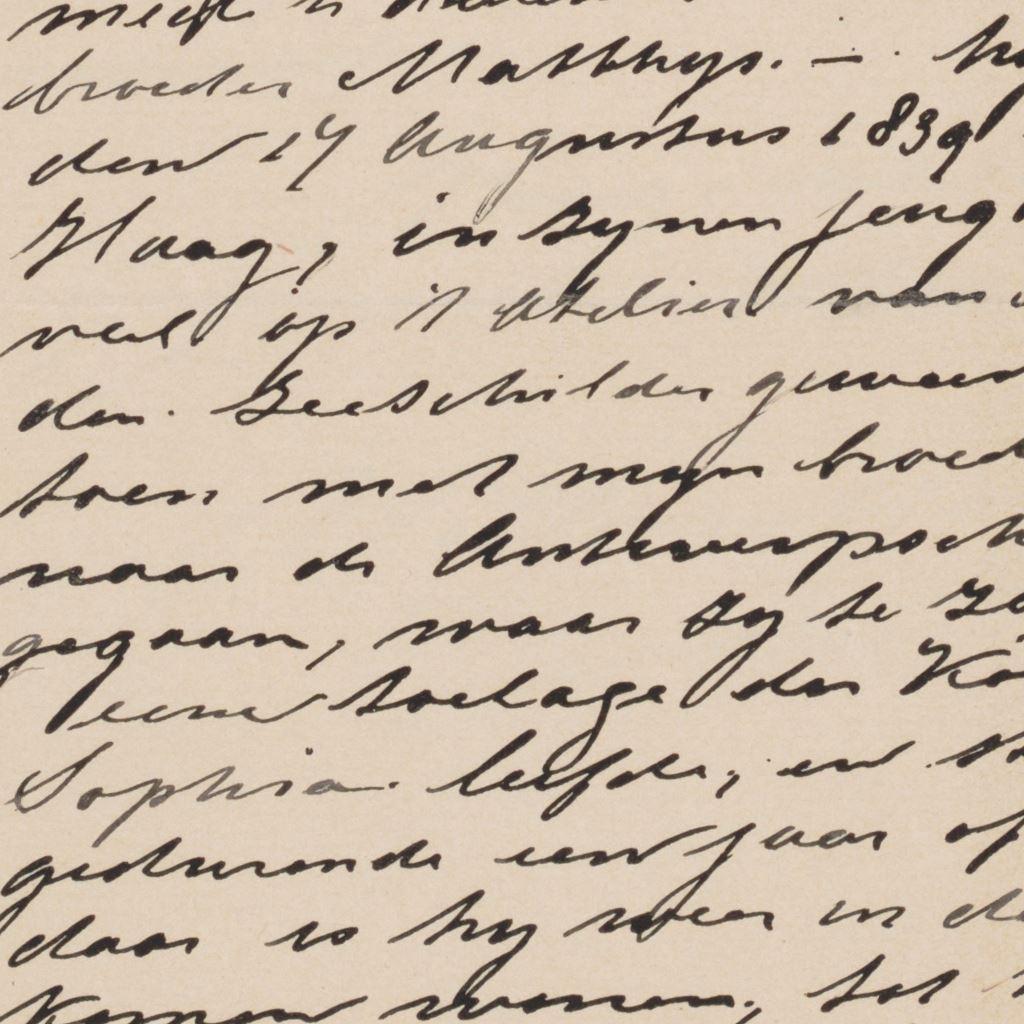 broeder Matthys. — . hy
den 17 Augustus 1839
Haag, in zynen jeug
veel op 't Atelier van
den Zeeschilder geweest
toen met myn broed
naar de Antwerpsch
gegaan, waar zy te Za
eene toelage der Ko
Sophia leefde, en st
gedurende een jaar op
daar is hy weer in de
komen wonen, tot